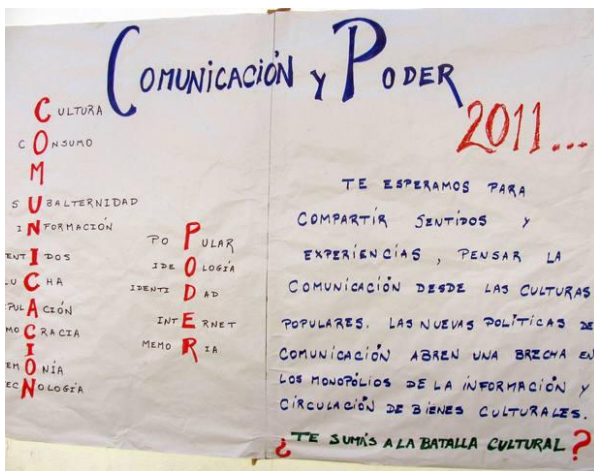 COMUNICACIÓN Y PODER
2011...
CULTURA
CONSUMO
M
SUBALTERNIDAD
INFORMACIÓN
ENTIDOS
UCHA
PULACIÓN
MOCRACIA
I
EMONÍA
ECNOLOGÍA
POPULAR
IDEOLOGÍA
IDENTIDAD
INTERNET
MEMORIA
TE ESPERAMOS PARA
COMPARTIR SENTIDOS Y
EXPERIENCIAS, PENSAR LA
COMUNICACIÓN DESDE LAS CULTURAS
POPULARES. LAS NUEVAS POLÍTICAS DE
COMUNICACIÓN ABREN UNA BRECHA EN
LOS MONOPOLIOS DE LA INFORMACIÓN Y
CIRCULACIÓN DE BIENES CULTURALES.
¿TE SUMÁS A LA BATALLA CULTURAL?